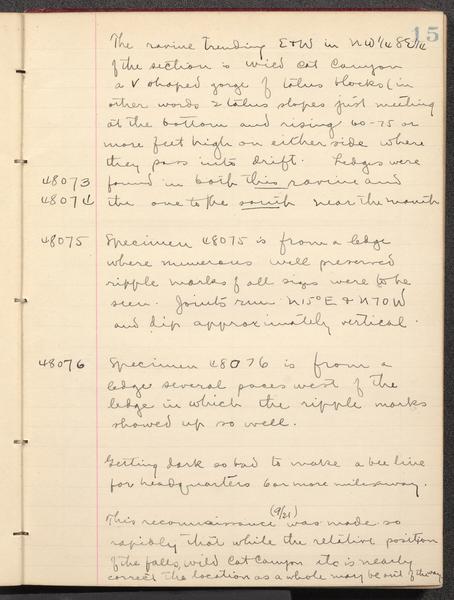 15
The ravine trending E & W in NW 1/4 SE 1/4
of the section is wied Cat Canyon
a V shaped gorge of talus blocks (in
other words 2 talus slopes just meeting
at the bottom and rising 60-75 or
more feet high on either side where
they pass into drift. Ledges were
48073 found in both this ravine and
48074 the one to the south near the mouth
48075 Specimen 48075 is from a ledge
where numerous well preserved
ripple marks of all sizes were to be
seen. Joints run N15°E & N70W
and dip approximately vertical.
48076 Specimen 48076 is from a
ledge several paces west of the
ledge in which the ripple marks
showed up so well.
Getting dark so had to make a bee line
for headquarters 6 or more miles away.
(9/21)
This reconnaissance was made so
rapidly that while the relative position
of the falls, wild Cat Canyon etc is nearly
correct the location as a whole may be out of the way